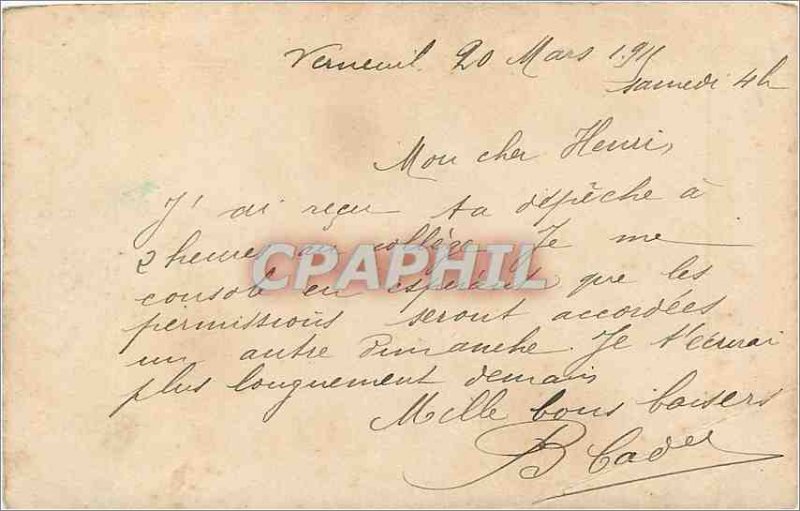 Verneuil 20 Mars 1911
Samedi 4h
Mon cher Henri,
J'ai reçu ta dépêche à
2 heures au collège. Je me
CPAPHIL
console en espérant que les
permissions seront accordées
un autre dimanche. Je t'écrirai
plus longuement demain
Mille bons baisers
B